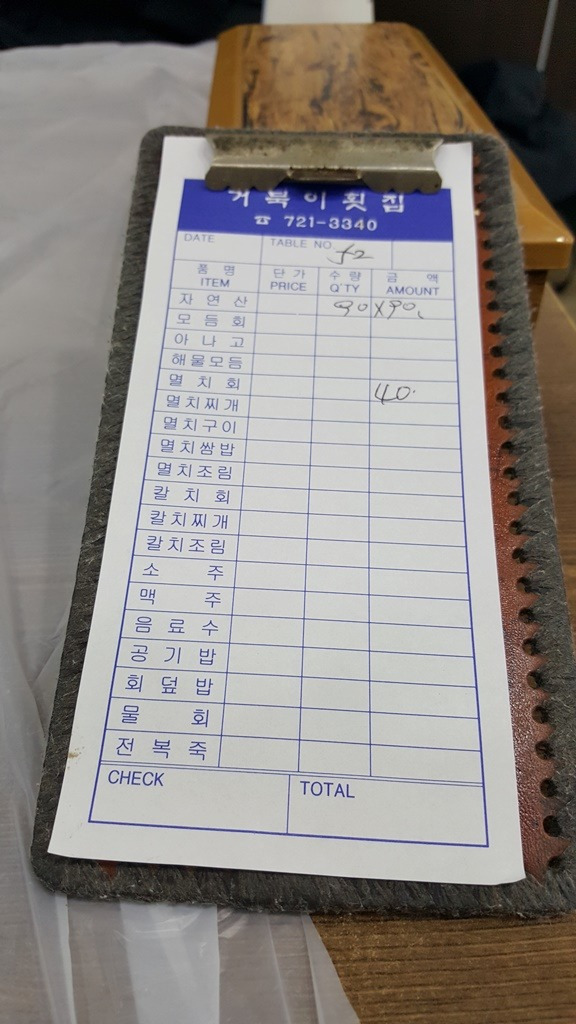 거북이횟집
☎ 721-3340
DATE TABLE NO
품명 단가 수량 금액
ITEM PRICE Q'TY AMOUNT
자연산 90X90
모듬회
아나고
해물모듬
멸치회 40
멸치찌개
멸치구이
멸치쌈밥
멸치조림
칼치회
칼치찌개
칼치조림
소주
맥주
음료수
공기밥
회덮밥
물회
전복죽
CHECK TOTAL